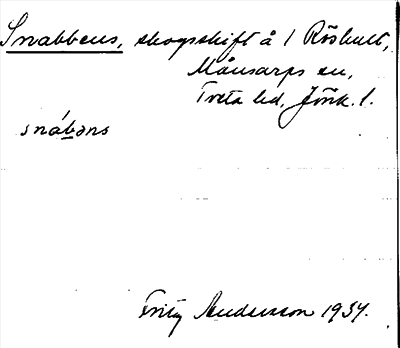 Snabbens, skogskift å 1 Röshult,
Månsarps sn,
Tveta hd, Jönk. l.
snábəns
Fritz Andersson 1934.